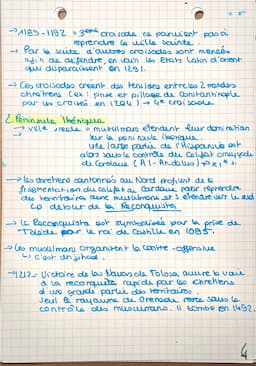 → 1189-1192 = 3ème croisade ne parvient pas à
reprendre la ville sainte.
→ Par la suite d'autres croisades sont menées
afin de défendre, en vain les Etats latin d'orient
qui disparaissent en 1291.
→ Ces croisades créent des tensions entre les 2 mondes
chrétiens (ex : prise et pillage de Constantinople
par les croisés en 1204) → 4e croisade.
2. Péninsule Ibérique
→ VIIIe siècle = musulmans étendent leur domination
sur la péninsule ibérique.
une large partie de l'Hispania est
alors sous le contrôle du Califat omeyyade
de Cordoue (Al-Andalus)
→ les chrétiens cantonnés au Nord profitent de la
fragmentation du califat de Cordoue pour reprendre
des territoires aux musulmans et s'étendre vers le sud
→ début de la Reconquista
→ La Reconquista est symbolisée par la prise de
Tolède par le roi de Castille en 1085.
→ Les musulmans organisent la contre-offensive
↳ c'est un jihad.
→ 1212 = Victoire de las Navas de Tolosa ouvre la voie
à la reconquête rapide par les chrétiens
d'une grande partie des territoires.
Seul le royaume de Grenade reste sous le
contrôle des musulmans. Il tombe en 1492.
4